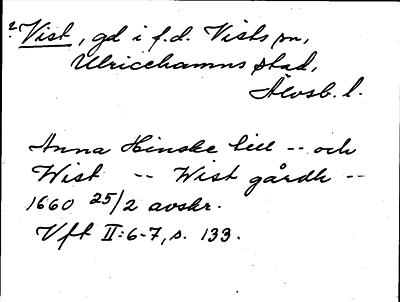 2. Vist, gd i f.d. Vists sn,
Ulricehamns stad,
Älvsb. l.
Anna Hinske till -- och
Wist -- Wist gårdh --
1660 25/2 avskr.
Vft II:6-7, s. 133.